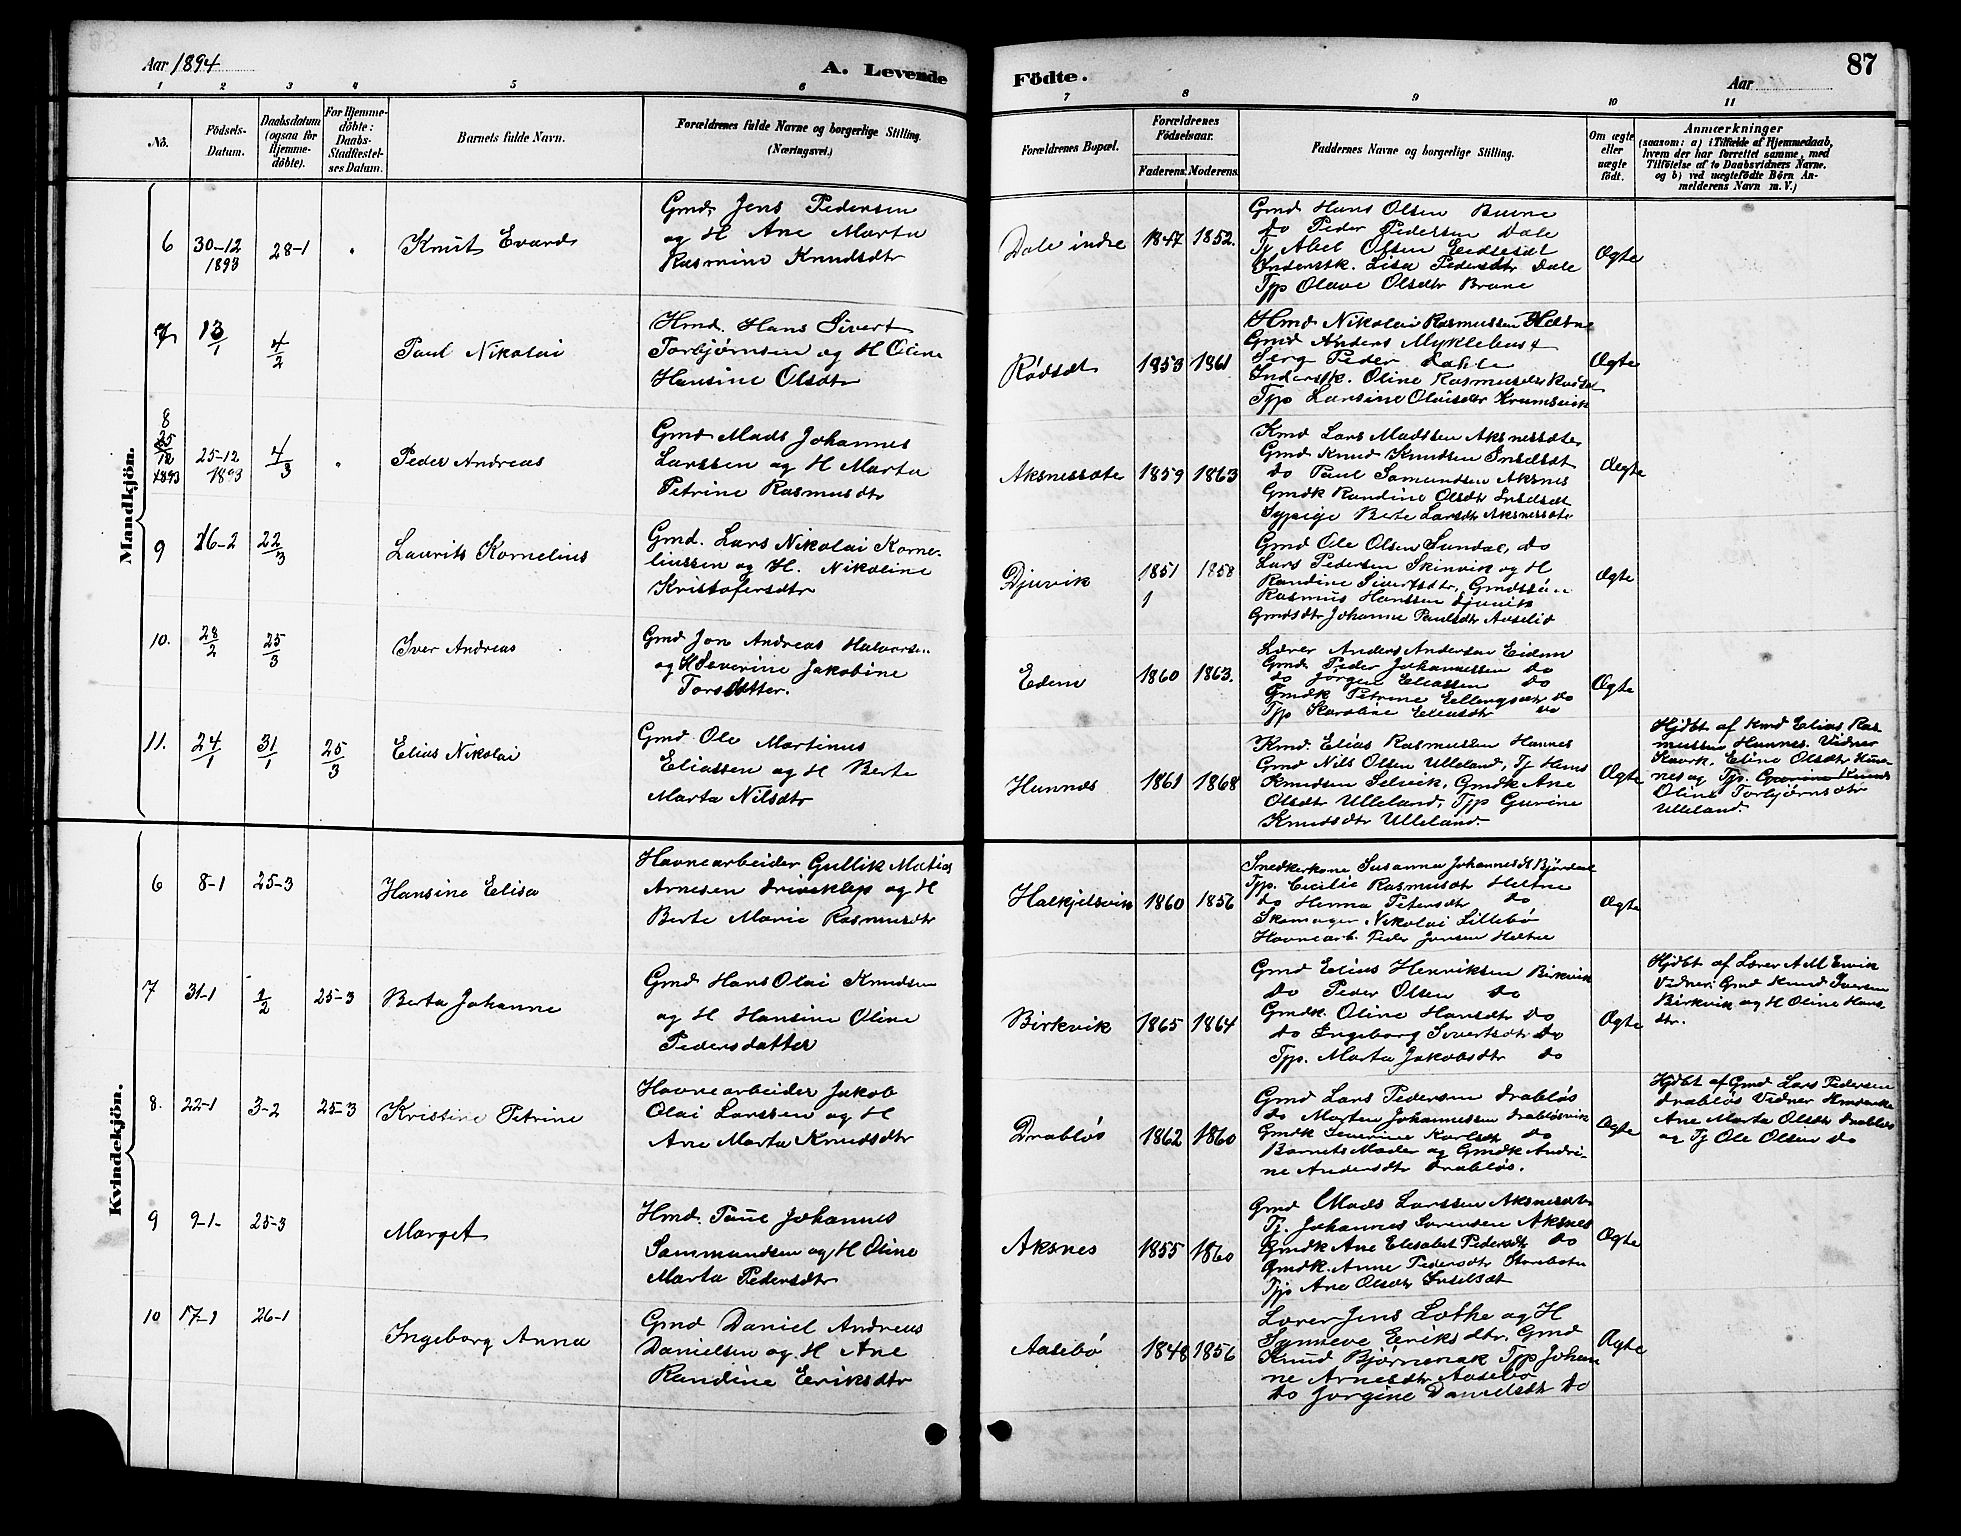 Aar 1894
A. Levende
Födte.
Aar
87
1 2 3 4 5 6 7 8 9 10 11
No.
Födsels-
Datum.
Daabsdatum
(ogsaa for
Hjemme-
döbte).
For Hjemme-
döbte:
Daabs-
Stadfæstel-
ses Datum.
Barnets fulde Navn.
Forældrenes fulde Navne og borgerlige Stilling.
(Næringsvei.)
Forældrenes Bopæl.
Forældrenes
Födselsaar.
Faderens. Moderens.
Faddernes Navne og borgerlige Stilling.
Om ægte
eller
uægte
födt.
Anmærkninger
(saasom: a) i Tilfælde af Hjemmedaab,
hvem der har forrettet samme, med
Tilföielse af to Daabsvidners Navne.
og b) ved uægtefödte Börn An-
melderens Navn m. V.)
Mandkjön.
6
30-12
1893
28-1
Knut Evard
Gmd. Jens Pedersen
og H Ane Marta
Rasmine Knudsdtr
Dale indre
1847 1852.
Gmd Hans Olsen Brune
do Peder Pedersen Dale
Tj Abel Olsen Eidsesæt
Inderstk. Lisa Pedersdtr Dale
Tpp Olave Olsdtr Brune
Ægte
7
13/1
4/2
Paul Nikolai
Hmd. Hans Sivert
Torbjørnsen og H Oline
Hansine Olsdtr
Rødsæt
1853 1861
Hmd Nikolai Rasmussen Heltne
Gmd Anders Myklebust
Serg Peder Dahle
Inderstk. Oline Rasmusdtr Rødset
Tpp Larsine Olausdtr Krumsvik
Ægte
8
25/12
1893
25-12
1893
4/3
Peder Andreas
Gmd Mads Johannes
Larssen og H Marta
Petrine Rasmusdtr
Aksnessæte
1859 1863
Kmd Lars Madssen Aksnessæter
Gmd Knud Knudsen Inselsæt
do Paul Samundsen Aksnes
Gmdk Randine Olsdtr Inselsæt
Sypige Berte Larsdtr Aksnessæte
Ægte
9
16-2
22/3
Laurits Kornelius
Gmd. Lars Nikolai Korne-
liussen og H. Nikoline
Kristofersdtr
Djuvik
1851 1858
Gmd Ole Olsen Sundal, do
Lars Pedersen Skinvik og H
Randine Sivertsdtr, Gmdssøn
Rasmus Hanssen Djuvik
Gmdsdtr Johanne Paulsdtr Aaselid
Ægte
10.
28/2
25/3
Iver Andreas
Gmd Jon Andreas Halvorsen
og H Severine Jakobine
Torsdatter.
Edem
1860 1863.
Lærer Anders Andersen Eidem
Gmd. Peder Johannessen do
do Jørgen Eliassen do
Gmdk Petrine Ellingsdtr do
Tpp Karoline Eliasdtr do
Ægte
11.
24/1
31/1
25/3
Elias Nikolai
Gmd Ole Martinus
Eliassen og H Berte
Marta Nilsdtr
Hunnes
1861 1868
Kmd. Elias Rasmussen Hunnes
Gmd Nils Olsen Ulleland, Tj Hans
Knudsen Selvik, Gmdk Ane
Olsdtr Ulleland, Tpp Gurine
Knudsdtr Ulleland.
Ægte
Hjdbt af Kmd Elias Ras-
mussen Hunnes. Vidner
Kaark. Eline Olsdtr Hun-
nes og Tpp. Gurine Knuds
Oline Torbjørnsdtr
Ulleland.
Kvindekjön.
6
8-1
25-3
Hansine Elisa
Havnearbeider Gullik Matias
Arnesen Driveklep og H
Berte Marie Rasmusdtr
Halkjelsvik
1860 1856
Snedkerkone Susanna Johannesdt Bjørdal
Tpp. Cecilie Rasmusdtr Heltne
do Henna Petersdtr do
Skomager Nikolai Lillebø
Havnearb. Peder Jonsen Heltne
Ægte
7
31-1
1/2
25-3
Berta Johanne
Gmd Hans Olai Knudsen
og H Hansine Oline
Pedersdatter
Birkvik
1865 1864
Gmd Elias Henriksen Birkvik
do Peder Olsen do
Gmdk. Oline Hansdtr do
do Ingeborg Sivertsdtr do
Tpp. Marta Jakobsdtr do
Ægte
Hjdbt af Lærer A M Ervik
Vidner: Gmd Knud Iversen
Birkvik og H Oline Hans-
dtr.
8.
22-1
3-2
25-3
Kristine Petrine
Havnearbeider Jakob
Olai Larssen og H
Ane Marta Knudsdtr
Drabløs
1862 1860
Gmd Lars Pedersen Drabløs
do Morten Johannessen Drabløsvik
Gmdk Severine Karlsdtr do
Barnets Moder og Gmdk Andri-
ne Andersdtr Drabløs.
Ægte
Hjdbt af Gmd Lars Pedersen
Drabløs Vidner Hmdenke
Ane Marta Olsdtr Drabløs
og Tj Ole Olsen do
9
9-1.
25-3
Marget
Hmd. Paul Johannes
Sammundsen og H Oline
Marta Pedersdtr
Aksnes
1855 1860
Gmd Mads Larssen Aksnesæte
Tj. Johannes Sørensen Aksnes
Gmdk Ane Elisabet Pedersdt do
Gmdk. Anne Pedersdtr Storebotn
Tpp Ane Olsdtr Inselsæt
Ægte
10
17-1
26-1
Ingeborg Anna
Gmd Daniel Andreas
Danielsen og H Ane
Randine Eriksdtr
Aasebø
1848 1856
Lærer Jens Lothe og H
Synneve Eriksdtr. Gmd
Knud Bjørnenak Tpp Johan-
ne Arnesdtr Aasebø
do Jorgine Danielsdtr do
Ægte